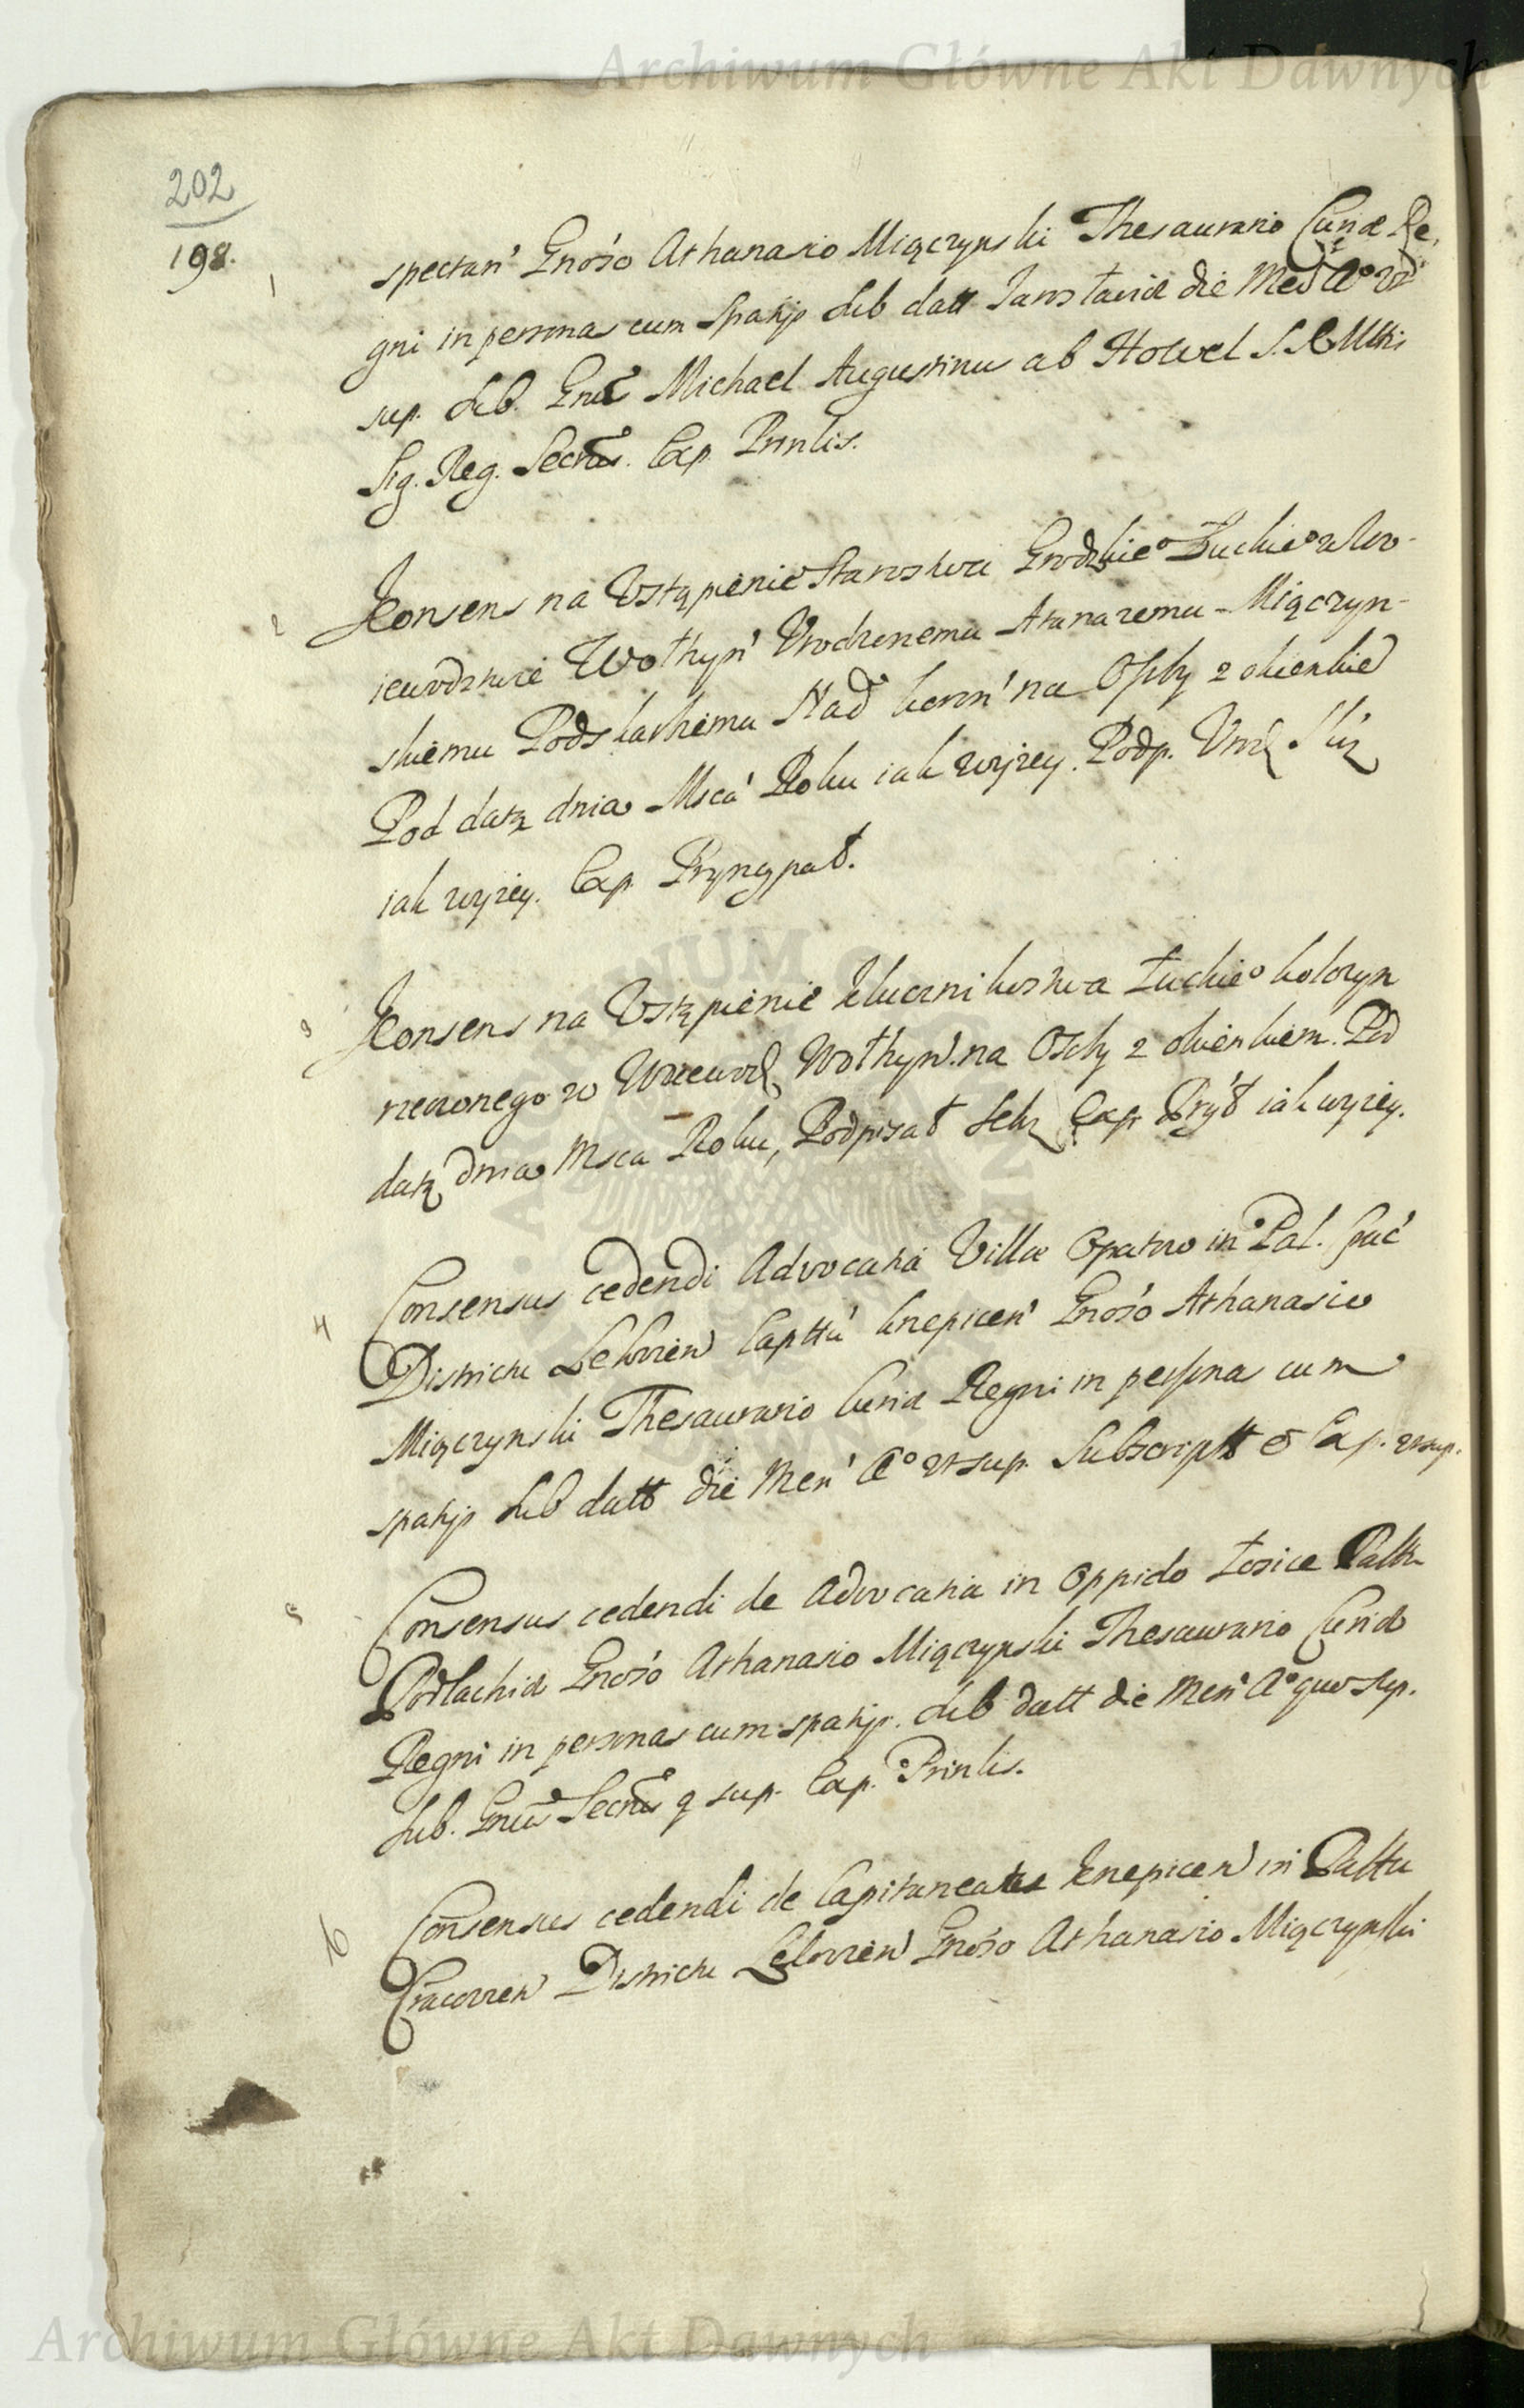 Archiwum Główne Akt Dawnych
202
198.
1
spectan' Gnoso Athanasio Miączynski Thesaurario Curiæ Re,
gni in personas cum spatijs sub datt Jarosłaviæ die Men' Ao ut
sup. sub. Michael Augustinus ab Howel S. R. Mttis
Sig. Reg. Secrus. Exp. Prinlis.
2
Konsens na Vstąpienie Starostwa Grodzkieo Łuckieo w Wo-
iewodztwie Wołhyn' Vrodzenemu Atanazemu Miączyn-
skiemu Podskarbiemu Nad koron' na Osoby z okienkiem
Pod datą dnia Msca' Roku iak wyzey. Podp.
iak wyzey. Exp. Pryncypał.
3
Konsens na Vstąpienie Klucznikostwa Łuckieo kolczyn
rzeczonego w Wołhyn. na Osoby z okienkiem. Pod
datą dnia Msca Roku, Podpisał Sekr Exp. iak wyzey.
4
Consensus cedendi Advocatiâ Villæ Opatow in Pal.
Districtu Lelovien Capttu' Knepicen' Gnoso Athanasio
Miączynski Thesaurario Curiæ Regni in personas cum
spatijs sub datt die Men' Ao ut sup. Subscriptt & Exp. ut sup.
5
Consensus cedendi de Advocatia in Oppido Łosice Palttu
Podlachiæ Gnoso Athanasio Miączynski Thesaurario Curiæ
Regni in personas cum spatijs. sub datt die Men' Ao quo sup.
Sub. Gnus Secrus q sup. Exp. Prinlis.
6
Consensus cedendi de Capitaneatu Knepicen in Palttu
Cracovien Districtu Lelovien Gnoso Athanasio Miączynski
Archiwum Główne Akt Dawnych